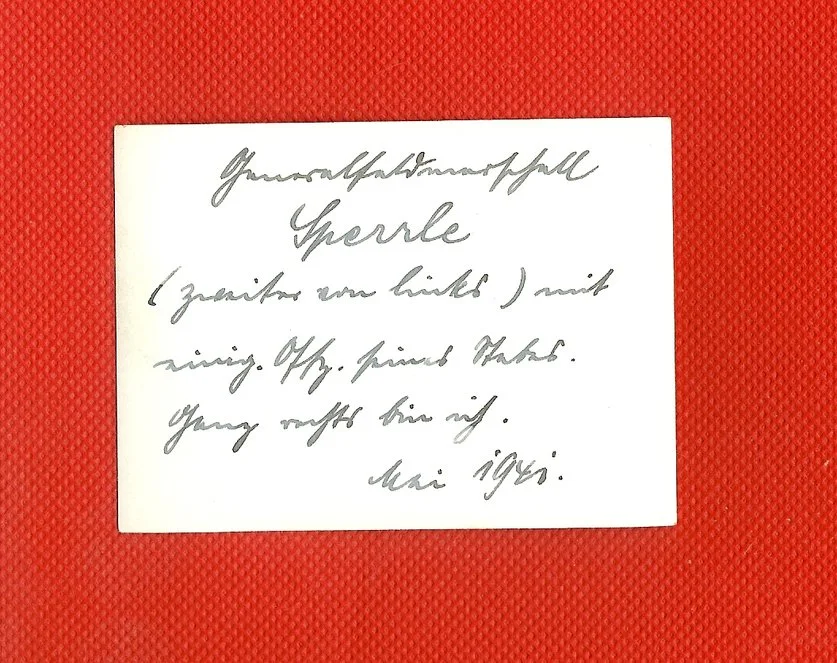 Generalfeldmarschall
Sperrle
(zweiter von links) mit
einig. Offz. seines Stabes.
Ganz rechts bin ich.
Mai 1941.